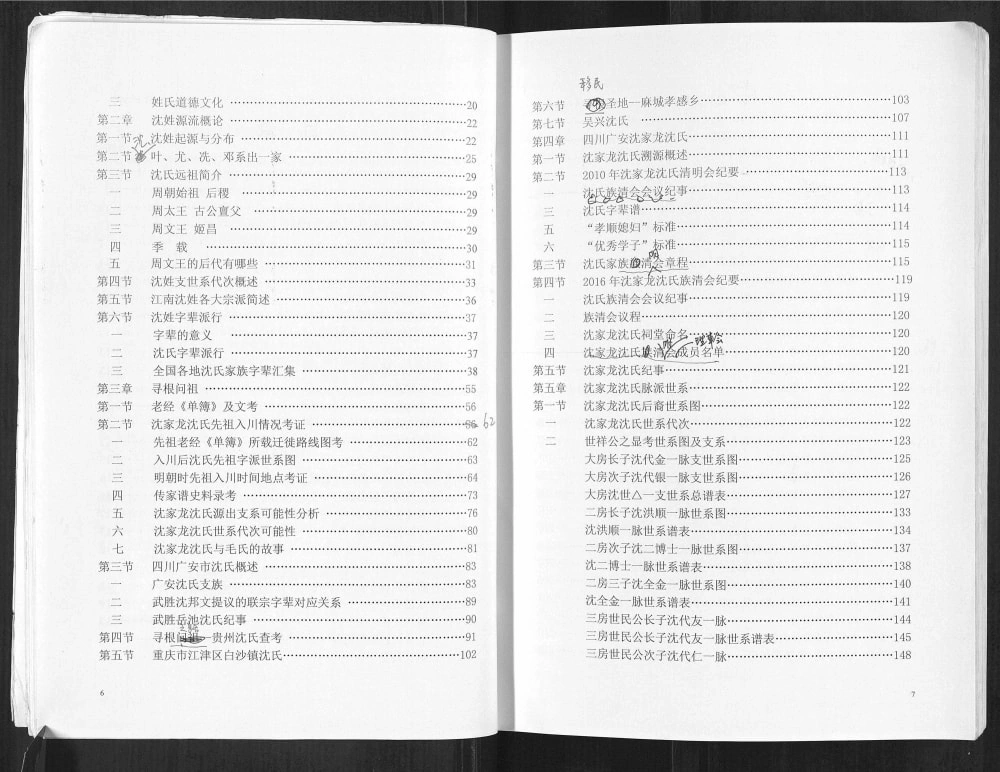 三 姓氏道德文化 ……………………………20
第二章 沈姓源流概论 ……………………………22
第一节 沈姓起源与分布 ……………………………22
第二节 叶、尤、冼、邓系出一家 ……………………………25
第三节 沈氏远祖简介 ……………………………29
一 周朝始祖 后稷 ……………………………29
二 周太王 古公亶父 ……………………………29
三 周文王 姬昌 ……………………………29
四 季 载 ……………………………30
五 周文王的后代有哪些 ……………………………31
第四节 沈姓支世系代次概述 ……………………………33
第五节 江南沈姓各大宗派简述 ……………………………36
第六节 沈姓字辈派行 ……………………………37
一 字辈的意义 ……………………………37
二 沈氏字辈派行 ……………………………37
三 全国各地沈氏家族字辈汇集 ……………………………38
第三章 寻根问祖 ……………………………55
第一节 老经《单簿》及文考 ……………………………56
第二节 沈家龙沈氏先祖入川情况考证 ……………………………56 62
一 先祖老经《单簿》所载迁徙路线图考 ……………………………62
二 入川后沈氏先祖字派世系图 ……………………………63
三 明朝时先祖入川时间地点考证 ……………………………64
四 传家谱史料录考 ……………………………73
五 沈家龙沈氏源出支系可能性分析 ……………………………76
六 沈家龙沈氏世系代次可能性 ……………………………80
七 沈家龙沈氏与毛氏的故事 ……………………………81
第三节 四川广安市沈氏概述 ……………………………83
一 广安沈氏支族 ……………………………83
二 武胜沈邦文提议的联宗字辈对应关系 ……………………………89
三 武胜岳池沈氏纪事 ……………………………90
第四节 寻根问祖—贵州沈氏查考 ……………………………91
第五节 重庆市江津区白沙镇沈氏 ……………………………102
6
移民
第六节 圣地—麻城孝感乡 ……………………………103
第七节 吴兴沈氏 ……………………………107
第四章 四川广安沈家龙沈氏 ……………………………111
第一节 沈家龙沈氏溯源概述 ……………………………111
第二节 2010 年沈家龙沈氏清明会纪要 ……………………………113
一 沈氏族清会会议纪事 ……………………………113
三 沈氏字辈谱 ……………………………114
五 “孝顺媳妇”标准 ……………………………114
六 “优秀学子”标准 ……………………………115
第三节 沈氏家族清会章程 ……………………………115
第四节 2016 年沈家龙沈氏族清会纪要 ……………………………119
一 沈氏族清会会议纪事 ……………………………119
二 族清会议程 ……………………………120
三 沈家龙沈氏祠堂命名 ……………………………120
理事会
四 沈家龙沈氏清会成员名单 ……………………………120
第五节 沈家龙沈氏纪事 ……………………………121
第五章 沈家龙沈氏脉派世系 ……………………………122
第一节 沈家龙沈氏后裔世系图 ……………………………122
一 沈家龙沈氏世系代次 ……………………………122
二 世祥公之显考世系图及支系 ……………………………123
大房长子沈代金一脉支世系图 ……………………………125
大房次子沈代银一脉支世系图 ……………………………126
大房沈世△一支世系总谱表 ……………………………127
二房长子沈洪顺一脉世系图 ……………………………133
沈洪顺一脉世系谱表 ……………………………134
二房次子沈二博士一脉世系图 ……………………………137
沈二博士一脉世系谱表 ……………………………138
二房三子沈全金一脉世系图 ……………………………140
沈全金一脉世系谱表 ……………………………141
三房世民公长子沈代友一脉 ……………………………144
三房世民公长子沈代友一脉世系谱表 ……………………………145
三房世民公次子沈代仁一脉 ……………………………148
7